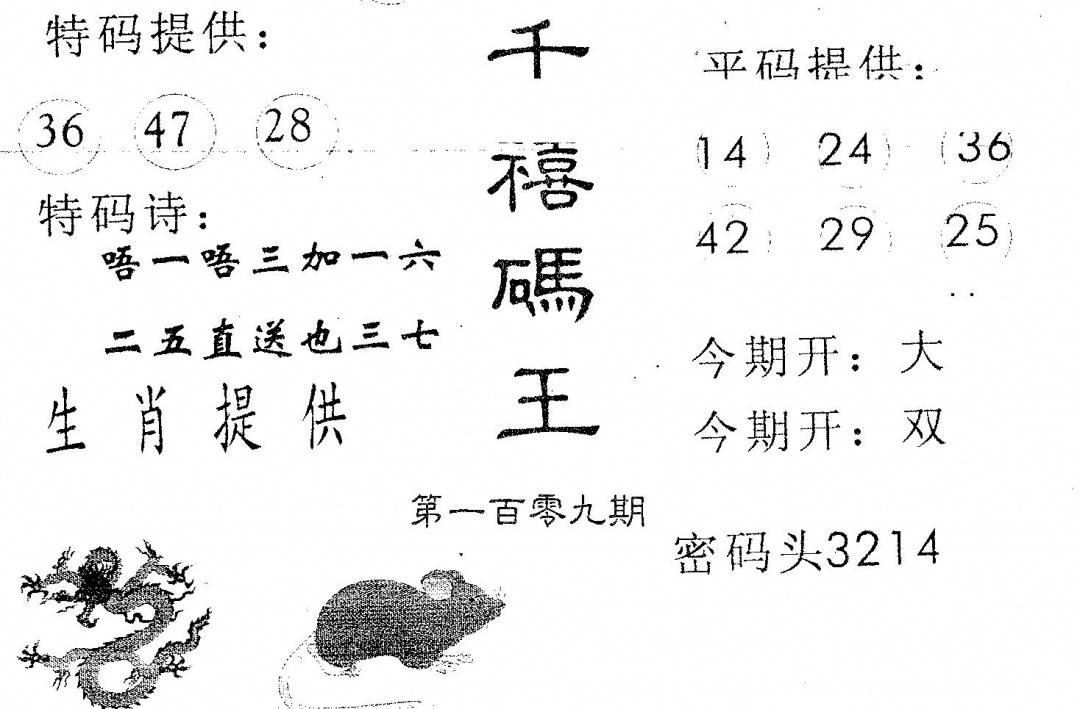 特码提供：
36 47 28
特码诗：
唔一唔三加一六
二五直送也三七
生肖提供
千禧碼王
第一百零九期
平码提供：
14 24 36
42 29 25
今期开：大
今期开：双
密码头3214